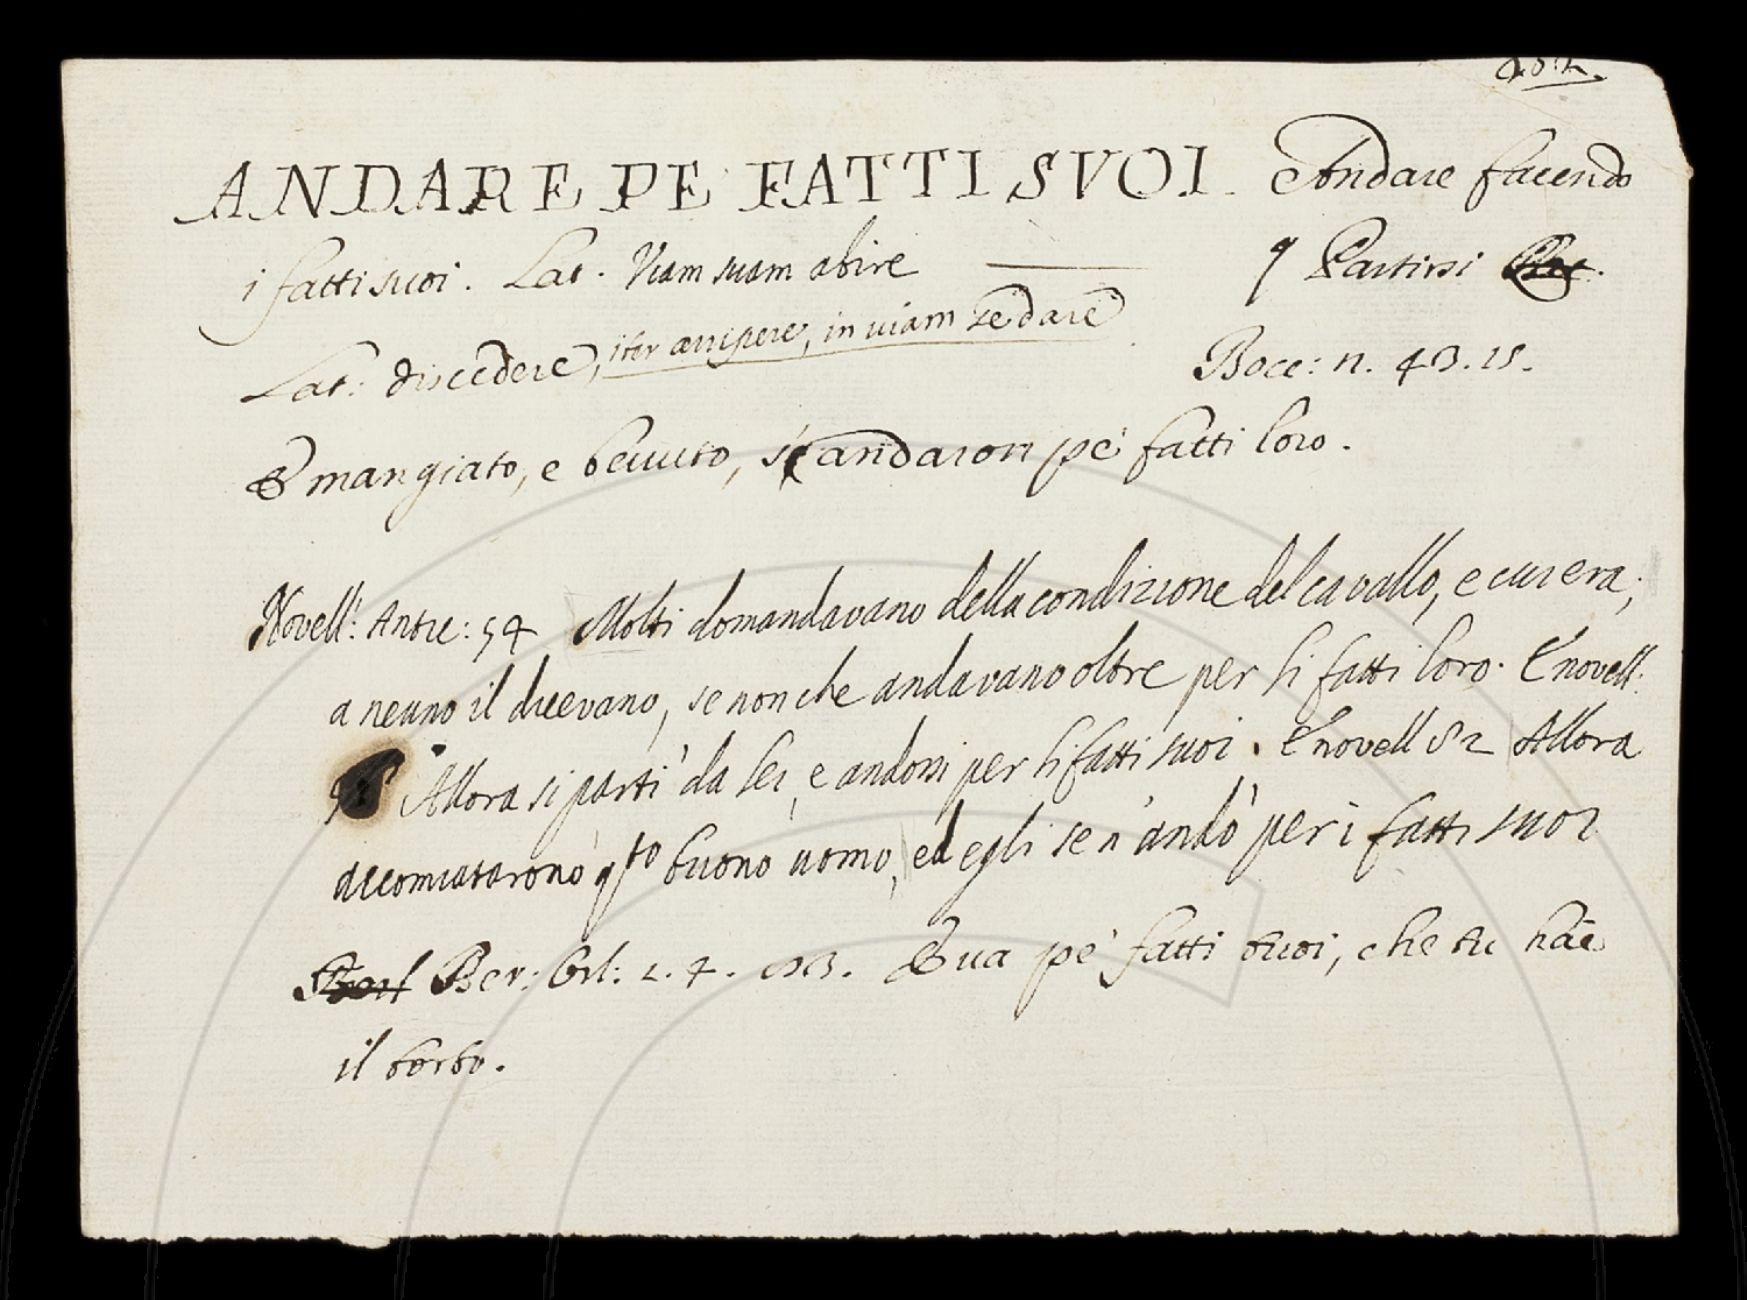 ANDARE PE FATTI SVOI. Andare facendo
i fatti suoi. Lat. Viam suam abire ——— q Partirsi
Lat: discedere, iter arripere, in viam se dare
Bocc: n. 43. 15.
E mangiato, e beuuto, s'andaron pe' fatti loro.
Novell: Antic: 54 Molti domandavano della condizione del cavallo, e cui era;
a neuno il dicevano, se non che andavano oltre per li fatti loro. E novell:
Allora si partì da lei, e andossi per li fatti suoi. E novell 82 Allora
accomiatarono qsto buono uomo, ed egli se n'andò per i fatti suoi
Ber: Orl: 2. 4. E ua pe' fatti tuoi, che tu hai
il torto.